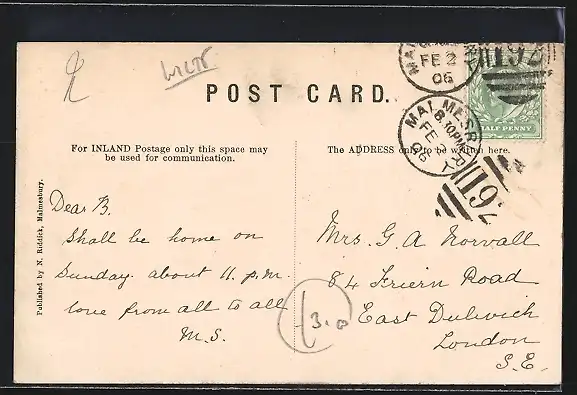 WILTS
POST CARD.
MALMESBURY
FE 2
06
MALMESBURY
8.30PM
FE 2
06
492
492
HALF PENNY
For INLAND Postage only this space may
be used for communication.
The ADDRESS only to be written here.
Published by N. Riddick, Malmesbury.
Dear B.
Shall be home on
Sunday. about 11. p.m.
love from all to all
M.S.
Mrs. G. A Norvall
84 Friern Road
East Dulwich
London
S.E.
3.0